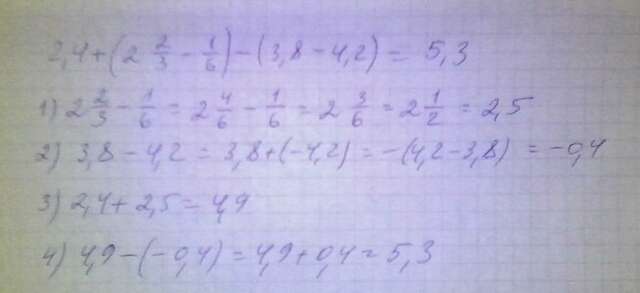 2,4+(2 2/3 - 1/6)-(3,8-4,2) = 5,3
1) 2 2/3 - 1/6 = 2 4/6 - 1/6 = 2 3/6 = 2 1/2 = 2,5
2) 3,8-4,2 = 3,8+(-4,2) = -(4,2-3,8) = -0,4
3) 2,4+2,5=4,9
4) 4,9-(-0,4)=4,9+0,4=5,3